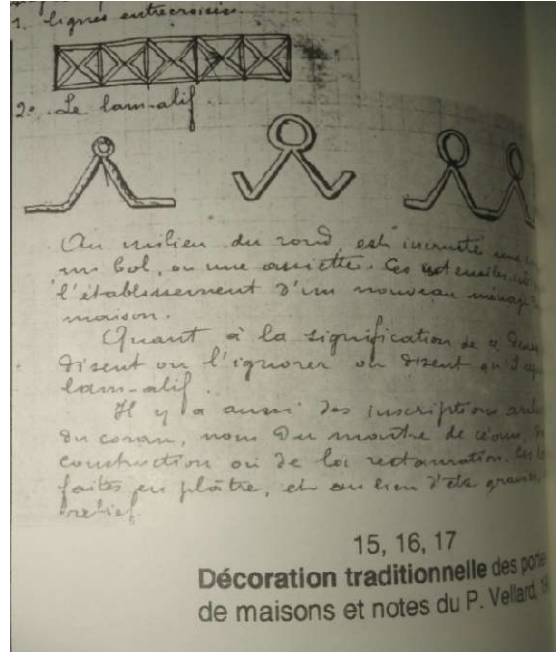 1. lignes entrecroisées
2°. Le lam-alif.
Au milieu du rond, est incrusté une
un bol, ou une assiette. Ces ustensiles
l'établissement d'un nouveau ménage
maison.
Quant à la signification de
disent ou l'ignorer ou disent qu'il
lam-alif.
Il y a aussi des inscriptions
du coran, nom du maître de céans,
construction ou de la restauration. Ces
faites en plâtre, et au lieu d'être gravées,
relief.
15, 16, 17
Décoration traditionnelle des
de maisons et notes du P. Vellard,